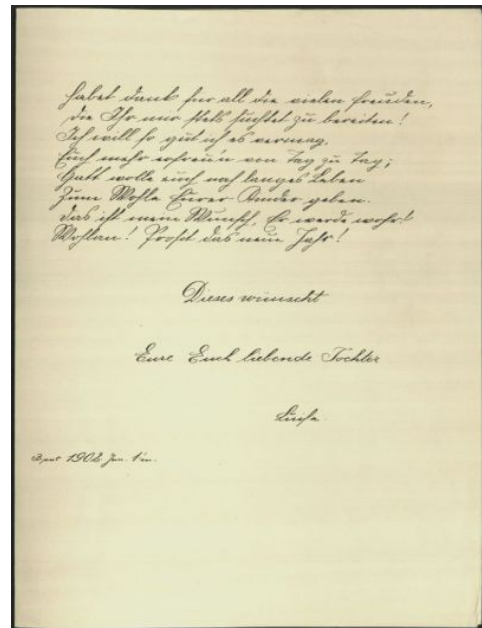 Habet Dank für all die vielen Freuden,
Die Ihr mir stets suchtet zu bereiten!
Ich will so gut ich es vermag,
Euch mehr erfreu'n von Tag zu Tag;
Gott wolle euch noch langes Leben
Zum Wohle Eurer Kinder geben.
Das ist mein Wunsch, Er werde wahr!
Wohlan! Prosit das neue Jahr!
Dieses wünscht
Eure Euch liebende Tochter
Luise
1902 Jan. 1